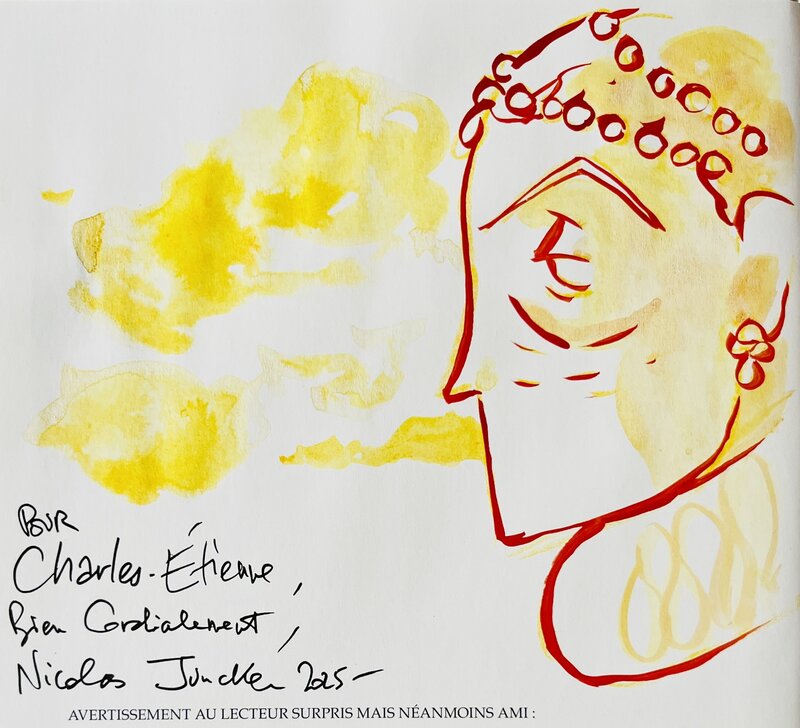 POUR
Charles-Étienne,
Bien Cordialement,
Nicolas Juncker 2025-
AVERTISSEMENT AU LECTEUR SURPRIS MAIS NÉANMOINS AMI :